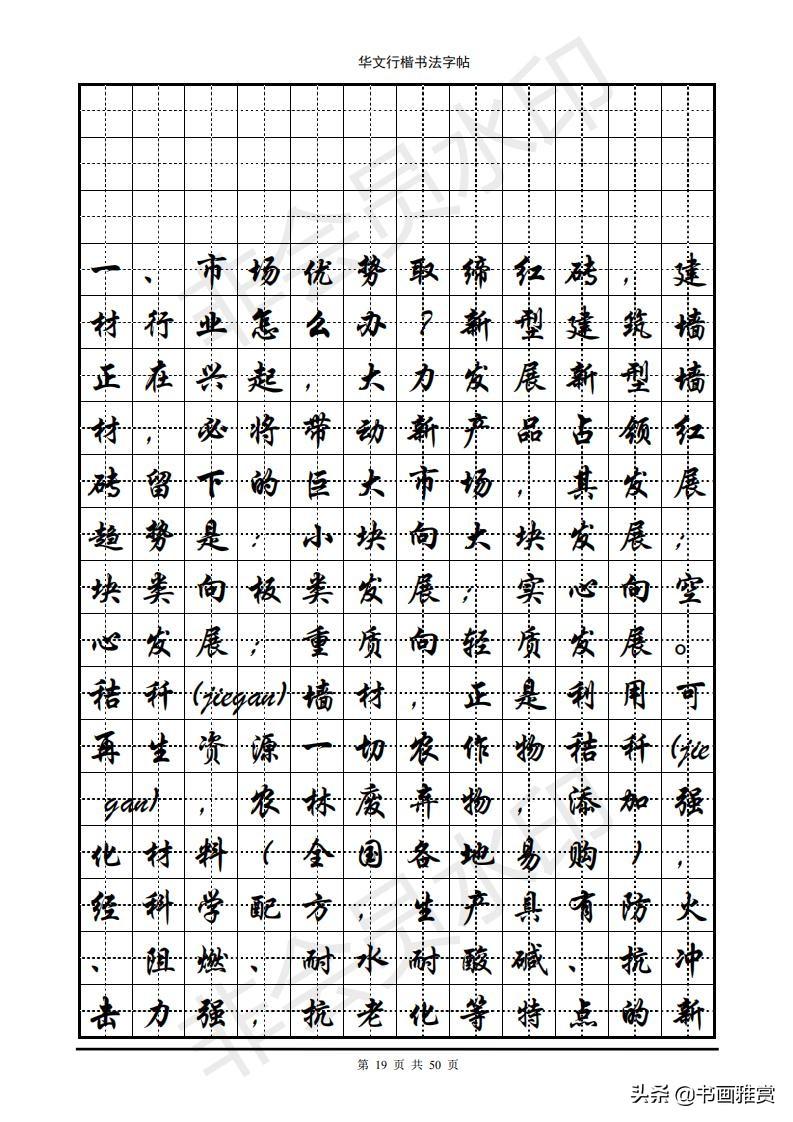 华文行楷书法字帖
一、市场优势取缔红砖，建
材行业怎么办？新型建筑墙
正在兴起，大力发展新型墙
材，必将带动新产品占领红
砖留下的巨大市场，其发展
趋势是：小块向大块发展；
块类向板类发展；实心向空
心发展；重质向轻质发展。
秸秆(jiegan)墙材，正是利用可
再生资源一切农作物秸秆(jie
gan)，农林废弃物，添加强
化材料（全国各地易购），
经科学配方，生产具有防火
、阻燃、耐水耐酸碱、抗冲
击力强，抗老化等特点的新
第 19 页 共 50 页
非会员水印
非会员水印
头条 @书画雅赏